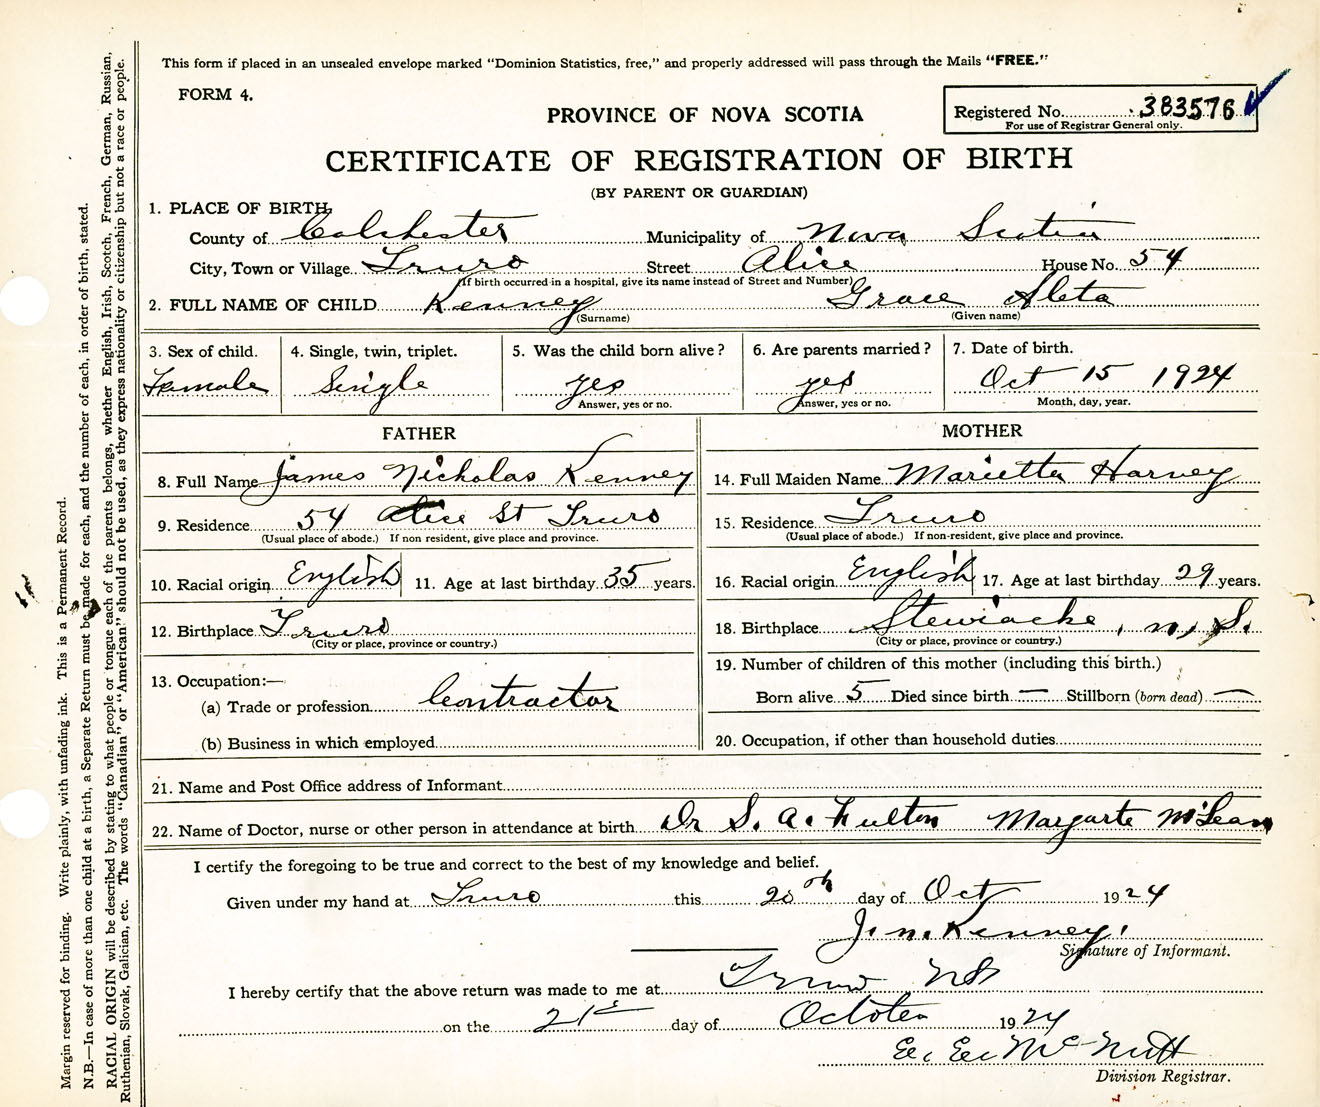 This form if placed in an unsealed envelope marked "Dominion Statistics, free," and properly addressed will pass through the Mails "FREE."
FORM 4.
PROVINCE OF NOVA SCOTIA
Registered No. 383576
For use of Registrar General only.
CERTIFICATE OF REGISTRATION OF BIRTH
(BY PARENT OR GUARDIAN)
1. PLACE OF BIRTH
County of Colchester Municipality of Nova Scotia
City, Town or Village Truro Street Alice House No. 54
(If birth occurred in a hospital, give its name instead of Street and Number)
2. FULL NAME OF CHILD Kenney Grace Aleta
(Surname) (Given name)
3. Sex of child. 4. Single, twin, triplet. 5. Was the child born alive? 6. Are parents married? 7. Date of birth.
Female Single yes yes Oct 15 1924
Answer, yes or no. Answer, yes or no. Month, day, year.
FATHER MOTHER
8. Full Name James Nicholas Kenney 14. Full Maiden Name Marietta Harvey
9. Residence 54 Alice St Truro 15. Residence Truro
(Usual place of abode.) If non resident, give place and province. (Usual place of abode.) If non-resident, give place and province.
10. Racial origin English 11. Age at last birthday 35 years. 16. Racial origin English 17. Age at last birthday 29 years.
12. Birthplace Truro 18. Birthplace Stewiacke, N, S.
(City or place, province or country.) (City or place, province or country.)
13. Occupation:— 19. Number of children of this mother (including this birth.)
(a) Trade or profession Contractor Born alive 5 Died since birth — Stillborn (born dead) —
(b) Business in which employed 20. Occupation, if other than household duties
21. Name and Post Office address of Informant
22. Name of Doctor, nurse or other person in attendance at birth Dr S. A. Fulton Margarte McLean
I certify the foregoing to be true and correct to the best of my knowledge and belief.
Given under my hand at Truro this 20th day of Oct 1924
J. N. Kenney.
Signature of Informant.
I hereby certify that the above return was made to me at Truro NS
on the 21st day of October 1924
E. E. McNutt
Division Registrar.
Margin reserved for binding. Write plainly, with unfading ink. This is a Permanent Record.
N.B.—In case of more than one child at a birth, a Separate Return must be made for each, and the number of each, in order of birth, stated.
RACIAL ORIGIN will be described by stating to what people or tongue each of the parents belongs, whether English, Irish, Scotch, French, German, Russian,
Ruthenian, Slovak, Galician, etc. The words "Canadian" or "American" should not be used, as they express nationality or citizenship but not a race or people.